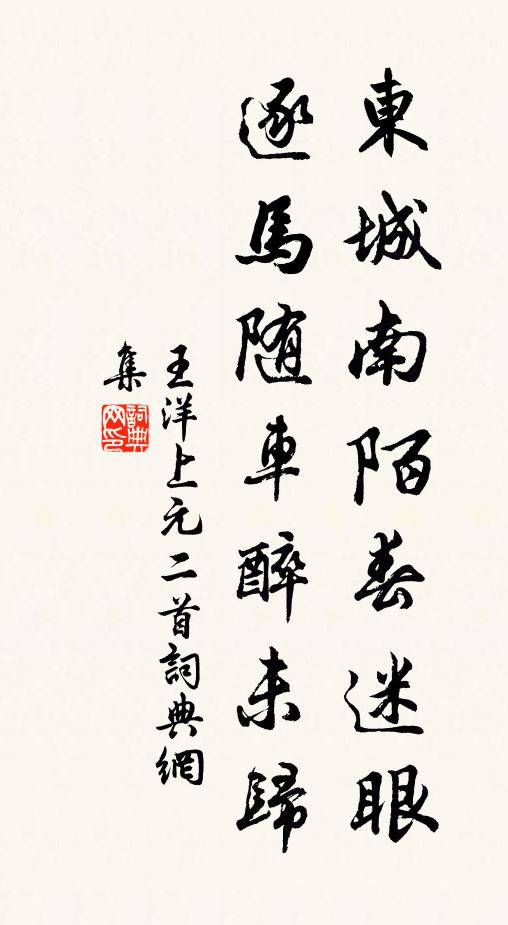 東城南陌春迷眼
逐馬随車醉未歸
王洋上元二首詞典網
集
詞典
网印